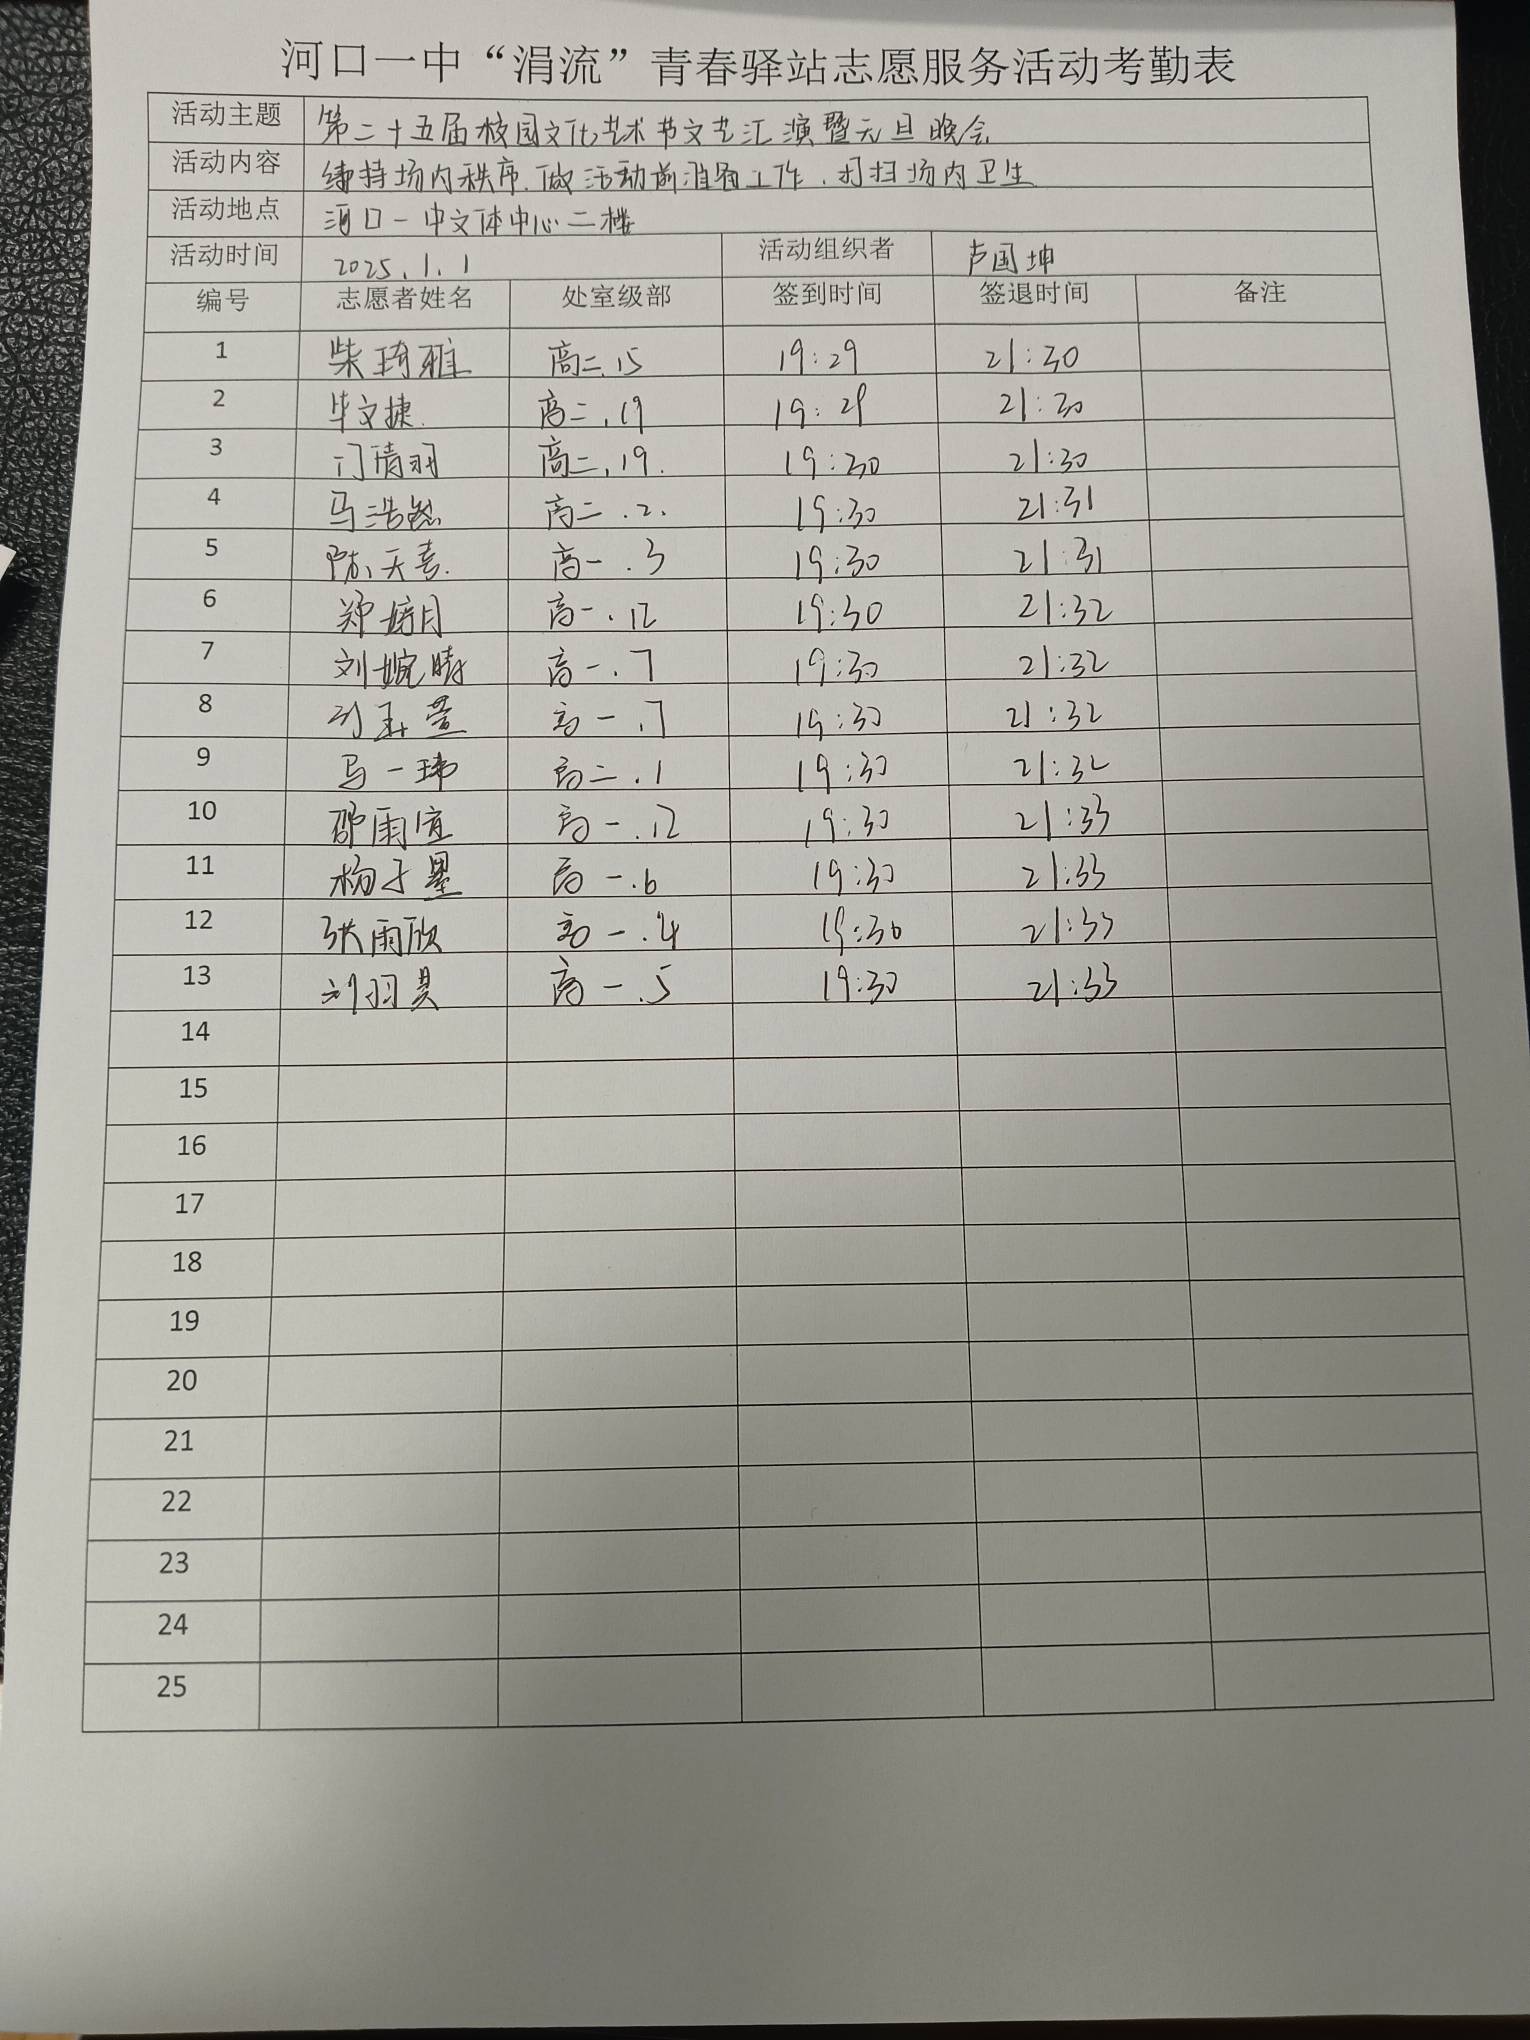 河口一中“涓流”青春驿站志愿服务活动考勤表
活动主题 第二十五届校园文化艺术节文艺汇演暨元旦晚会
活动内容 维持场内秩序、做活动前准备工作、打扫场内卫生
活动地点 河口一中文体中心二楼
活动时间 2025.1.1 活动组织者 卢国坤
编号 志愿者姓名 处室级部 签到时间 签退时间 备注
1 柴琦雅 高二.15 19:29 21:30
2 毕文捷. 高二.19 19:29 21:30
3 门清羽 高二.19. 19:30 21:30
4 马浩然 高二.2. 19:30 21:31
5 陈天喜. 高一.3 19:30 21:31
6 郑婧月 高一.12 19:30 21:32
7 刘婉晴 高一.7 19:30 21:32
8 刘玉萱 高一.7 19:30 21:32
9 马一玮 高二.1 19:30 21:32
10 邵雨 高一.12 19:30 21:33
11 杨子墨 高一.6 19:30 21:33
12 张雨欣 高一.4 19:30 21:33
13 刘羽 高一.5 19:30 21:33
14
15
16
17
18
19
20
21
22
23
24
25